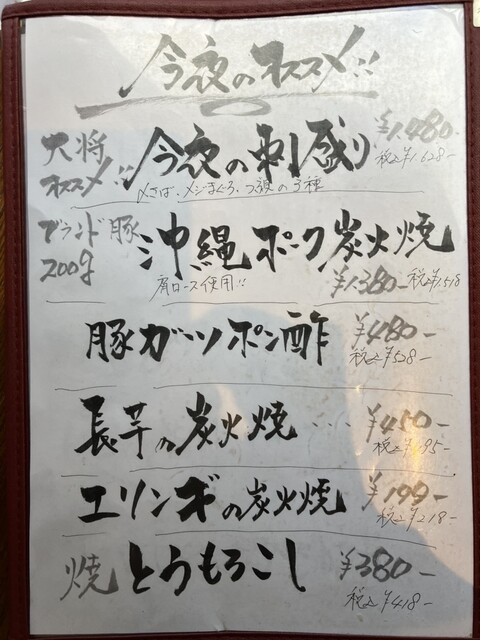 今夜のオススメ!!
大将オススメ!! 今夜の刺盛り ¥1.480- 税込¥1.628-
〆さば、メジまぐろ、つぶの3種
ブランド豚200g 沖縄ポーク炭火焼
肩ロース使用!! ¥1.380- 税込¥1.518
豚ガーツポン酢 ¥480-
税込¥528-
長芋の炭火焼 ... ¥450-
税込¥495-
エリンギの炭火焼 ¥199-
税込¥218-
焼とうもろこし ¥380-
税込¥418-